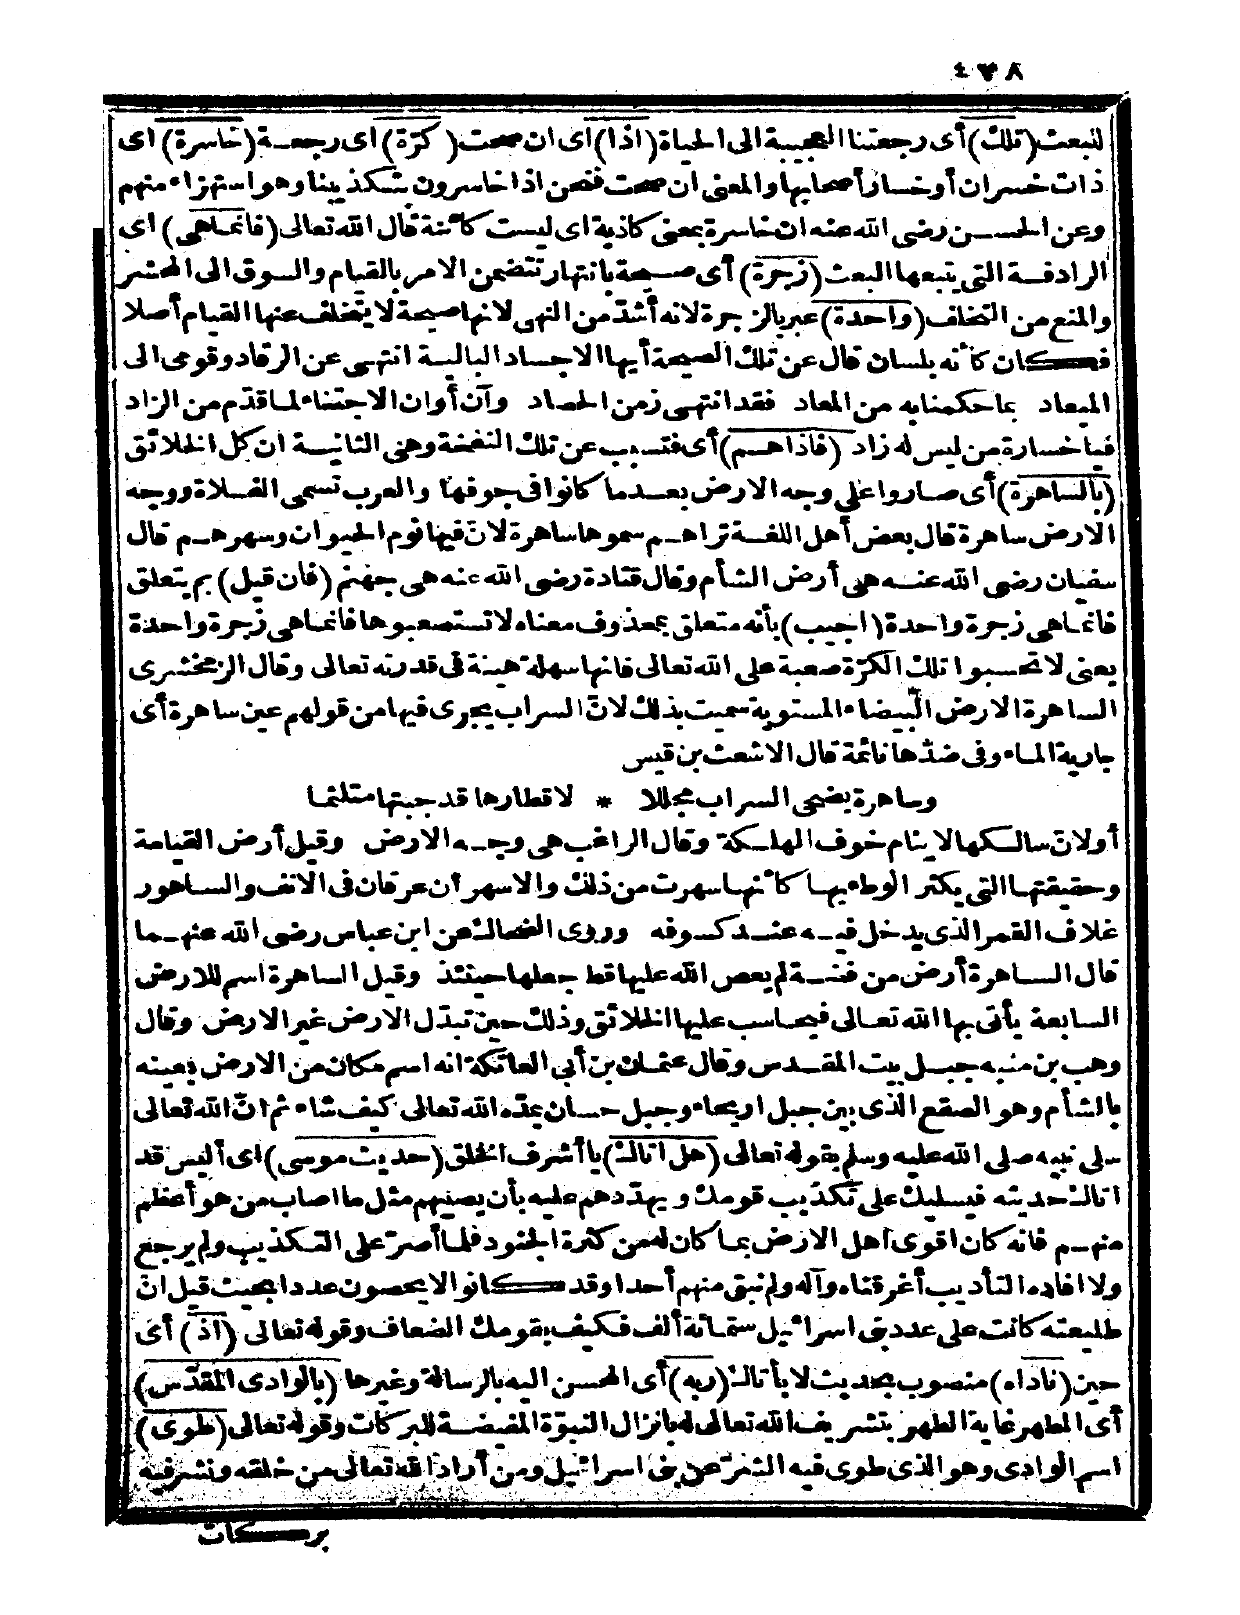 ٤٧٨
لنبعث (تلك) أى رجعتنا العجيبة الى الحياة (اذا) اى ان صحت (كرّة) اى رجعـة (خاسرة) اى
ذات خسران أو خسار أصحابها والمعنى ان صحت فنحن اذا خاسرون بتكذيبنا وهو استهزاء منهم
وعن الحســن رضى الله عنه ان خاسرة بمعنى كاذبة اى ليست كائنة قال الله تعالى (فانماهى) اى
الرادفــة التى يتبعها البعث (زجرة) أى صــيحة بانتهار تتضمن الامر بالقيام والسوق الى المحشر
والمنع من التخلف (واحدة) عبر بالزجرة لانه أشدّ من النهى لانها صيحة لا يتخلف عنها القيام أصلا
فـكان كأنه بلسان قال عن تلك الصيحة أيها الاجساد البالية انتهـى عن الرقاد وقومى الى
الميعاد بما حكمنا به من المعاد فقد انتهـى زمن الحصاد وآن أوان الاجتناء لما قدّم من الزاد
فيا خسارة من ليس له زاد (فاذاهـم) أى فتسبب عن تلك النفخة وهى الثانيــة ان كل الخلائق
(بالساهرة) أى صاروا على وجه الارض بعـدما كانوا فى جوفها والعرب تسمى الفلاة ووجه
الارض ساهرة قال بعض أهل اللغــة تراهـم سموها ساهرة لانّ فيها نوم الحيوان وسهرهـم قال
سفيان رضى الله عنــه هى أرض الشأم وقال قتادة رضى الله عنه هى جهنم (فان قيل) بم يتعلق
فانماهى زجرة واحدة (اجيب) بأنه متعلق بمحذوف معناه لا تستصعبوها فانماهى زجرة واحدة
يعنى لا تحسبوا تلك الكرّة صعبة على الله تعالى فانها سهلة هينة فى قدرته تعالى وقال الزمخشرى
الساهرة الارض البيضاء المستوية سميت بذلك لانّ السراب يجرى فيها من قولهم عين ساهرة أى
جارية الماء وفى ضدّها نائمة قال الاشعث بن قيس
وساهرة يضحى السراب مجللا * لاقطارها قد جبتها متلثما
أو لانّ سالـكها لا ينام خوف الهلـكة وقال الراغب هى وجـه الارض وقيل أرض القيامة
وحقيقتها التى يكثر الوطء بها كأنها سهرت من ذلك والاسهران عرقان فى الانف والساهور
غلاف القمر الذى يدخل فيـه عنـد كسوفه وروى الضحاك عن ابن عباس رضى الله عنهـما
قال الساهرة أرض من فضـة لم يعص الله عليها قط جعلها حينئذ وقيل الساهرة اسم للارض
السابعة يأتى بها الله تعـالى فيحاسب عليها الخلائق وذلك حين تبدّل الارض غير الارض وقال
وهب بن منبه جبـل بيت المقـدس وقال عثمان بن أبى العاتكة انه اسم مكان من الارض بعينه
بالشأم وهو الصقع الذى بين جبل اريحاء وجبل حسان يمدّه الله تعالى كيف شاء ثم انّ الله تعالى
سلى نبيه صلى الله عليه وسلم بقوله تعالى (هل اتاك) يا أشرف الخلق (حديث موسى) اى أليس قد
اتاك حديثه فيسليك على تكذيب قومك ويهدّدهم عليه بأن يصيبهم مثل ما اصاب من هو أعظم
منهـم فانه كان اقوى اهل الارض بما كان له من كثرة الجنود فلما أصرّ على التـكذيب ولم يرجع
ولا افاده التأديب أغرقناه وآله ولم نبق منهم أحدا وقد كانوا لا يحصون عددا بحيث قيل انّ
طليعته كانت على عدد بنى اسرائيل ستمائة ألف فـكيف بقومك الضعاف وقوله تعالى (اذ) أى
حين (ناداه) منصوب بحديث لا بأتاك (ربه) أى المحسن اليه بالرسالة وغيرها (بالوادى المقدّس)
أى المطهر غاية الطهر بتشريف الله تعالى له بانزال النبوّة المفيضـة للبركات وقوله تعالى (طوى)
اسم الوادى وهو الذى طوى فيه الشرّ عن بنى اسرائيل ومن أراد الله تعالى من خلقه ونشر فيه
بركات